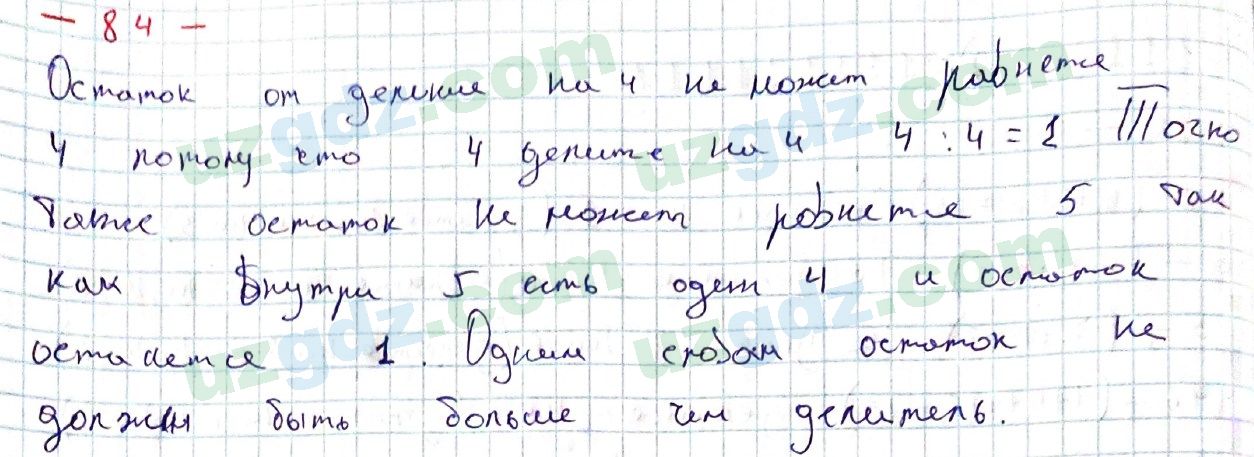 - 84 -
Остаток от деление на 4 не может равнется
4 потому что 4 делите на 4 4 : 4 = 1 Точно
также остаток не может равнется 5 так
как внутри 5 есть одет 4 и остаток
остается 1. Одним словом остаток не
должны быть больше чем делитель.
uzgdz.com uzgdz.com
uzgdz.com uzgdz.com